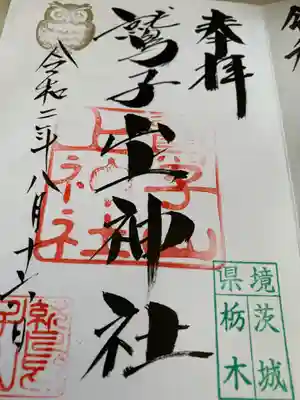 奉拝
鷲子山上神社
令和二年八月十六日
県境
茨城
栃木